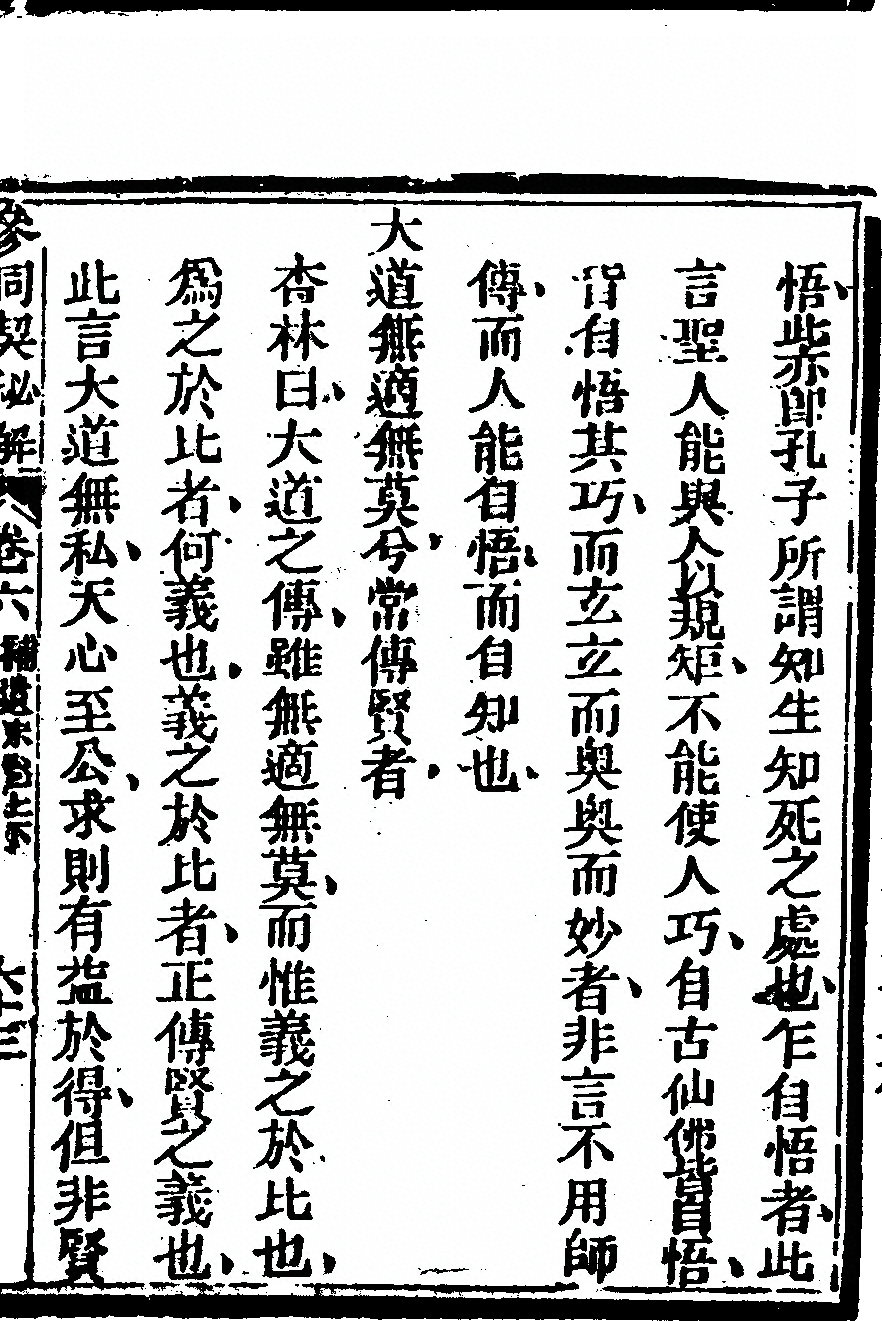 悟、此亦即孔子所謂知生知死之處也、乍自悟者、此
言聖人能與人以規矩、不能使人巧、自古仙佛皆自悟、
皆自悟其巧、而玄玄而奧奧而妙者、非言不用師
傳、而人能自悟、而自知也、
大道無適無莫兮、常傳賢者、
杏林曰、大道之傳、雖無適無莫、而惟義之於比也、
爲之於比者、何義也、義之於比者、正傳賢之義也、
此言大道無私、天心至公、求則有益於得、但非賢
參同契秘解 卷六 補遺 六十三